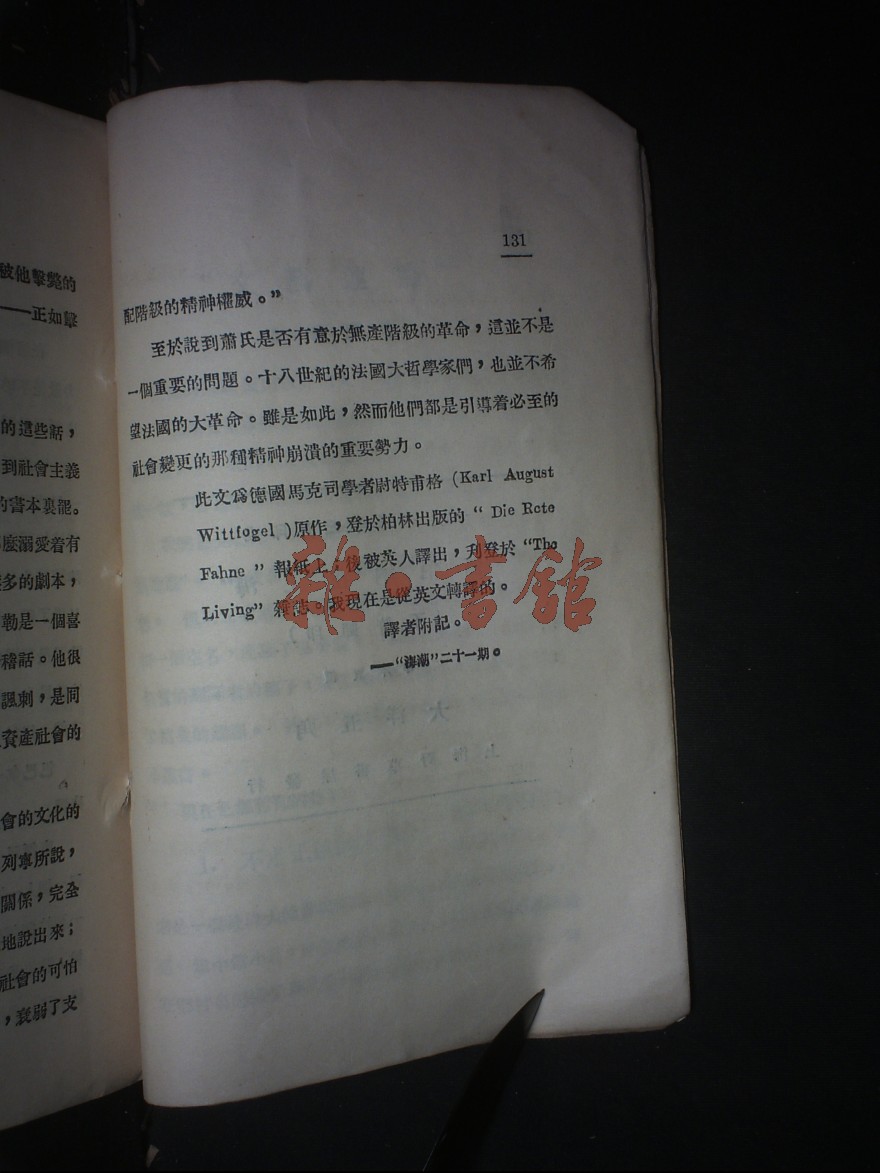 被他擊斃的
——正如擊
的這些話，
到社會主義
的書本裏罷。
麼溺愛着有
多的劇本，
勒是一個喜
稽話。他很
諷刺，是同
資產社會的
會的文化的
列寧所說，
關係，完全
地說出來；
社會的可怕
，衰弱了支
131
配階級的精神權威。”
至於說到蕭氏是否有意於無產階級的革命，這並不是
一個重要的問題。十八世紀的法國大哲學家們，也並不希
望法國的大革命。雖是如此，然而他們都是引導着必至的
社會變更的那種精神崩潰的重要勢力。
此文爲德國馬克司學者尉特甫格 (Karl August
Wittfogel )原作，登於柏林出版的 “ Die Rote
Fahne ” 報紙上；後被英人譯出，刋登於 “The
Living” 雜誌。我現在是從英文轉譯的。
譯者附記。
——“海潮”二十一期。
雜·書館